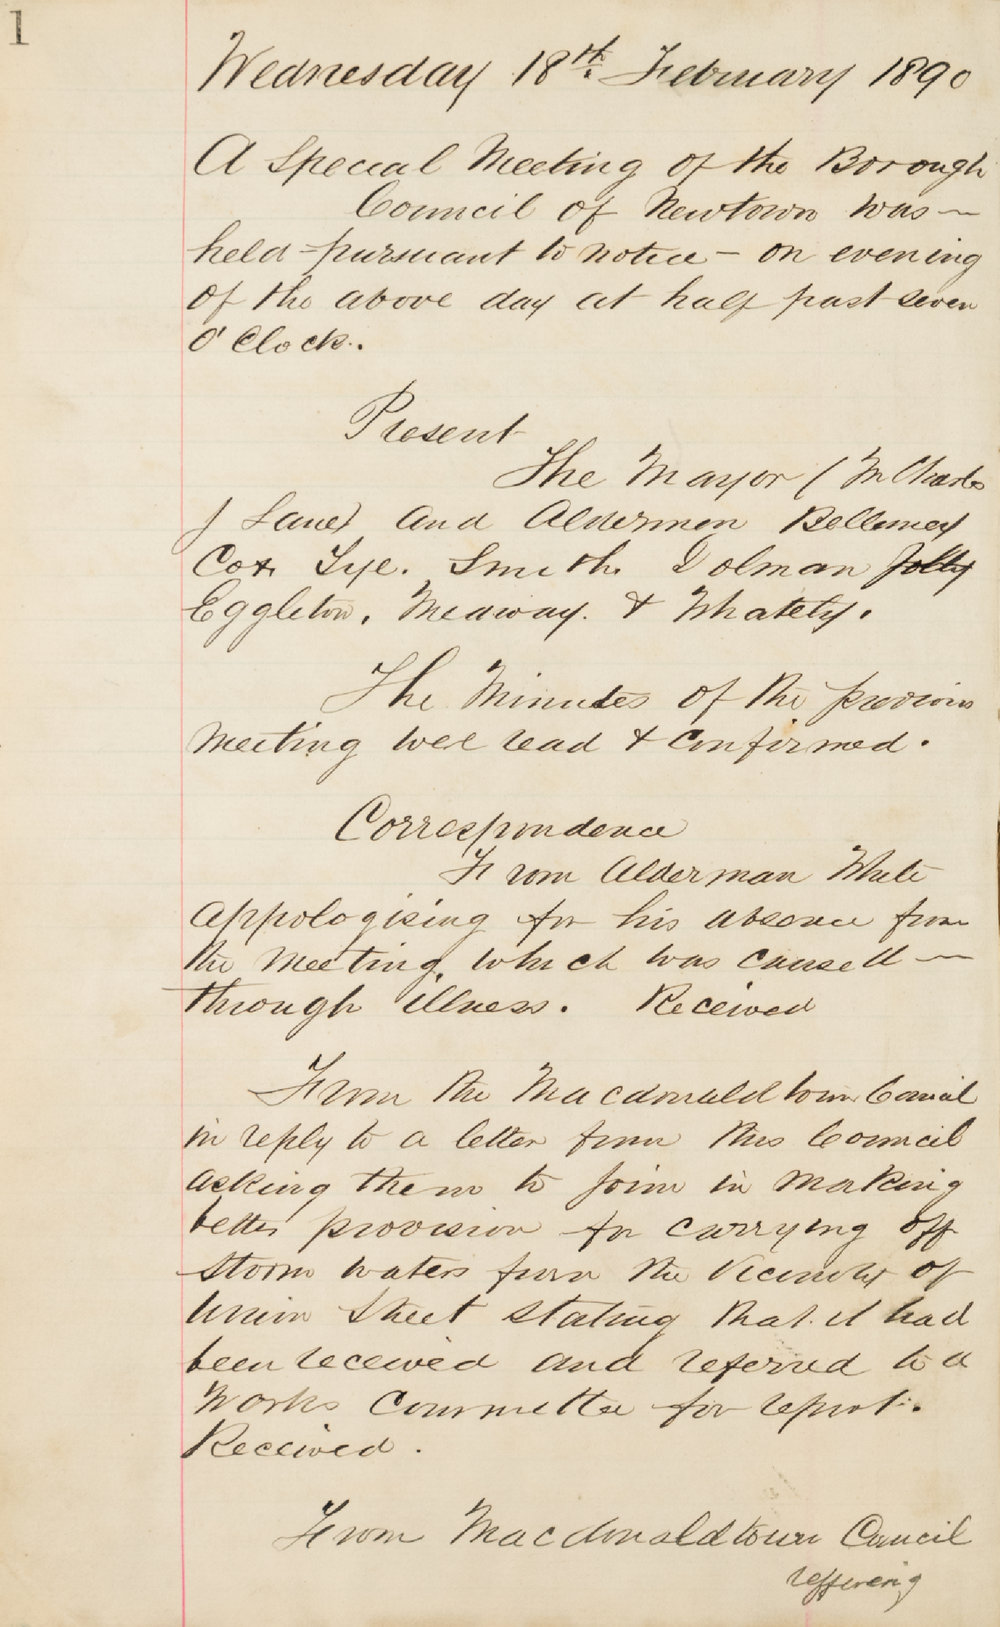 1
Wednesday 18th. February 1890
A Special Meeting of the Borough
Council of Newtown was —
held pursuant to notice — on evening
of the above day at half past seven
O'Clock.
Present
The Mayor ( Mr Charles
J Lane) and Aldermen Bellemey
Cox, Tye. Smith. Dolman Jolly
Eggleton, Medway. & Whately.
The Minutes of the previous
Meeting wee read & confirmed.
Correspondence
From Alderman White
Appologising for his absence from
the Meeting, which was caused —
through illness. Received
From the Macdonaldtown Council
in reply to a letter from this Council
asking them to join in making
better provision for carrying off
storm waters from the Vicinity of
Union Street stating that it had
been received and referred to a
Works Committee for report.
Received.
From Macdonaldtown Council
reffering